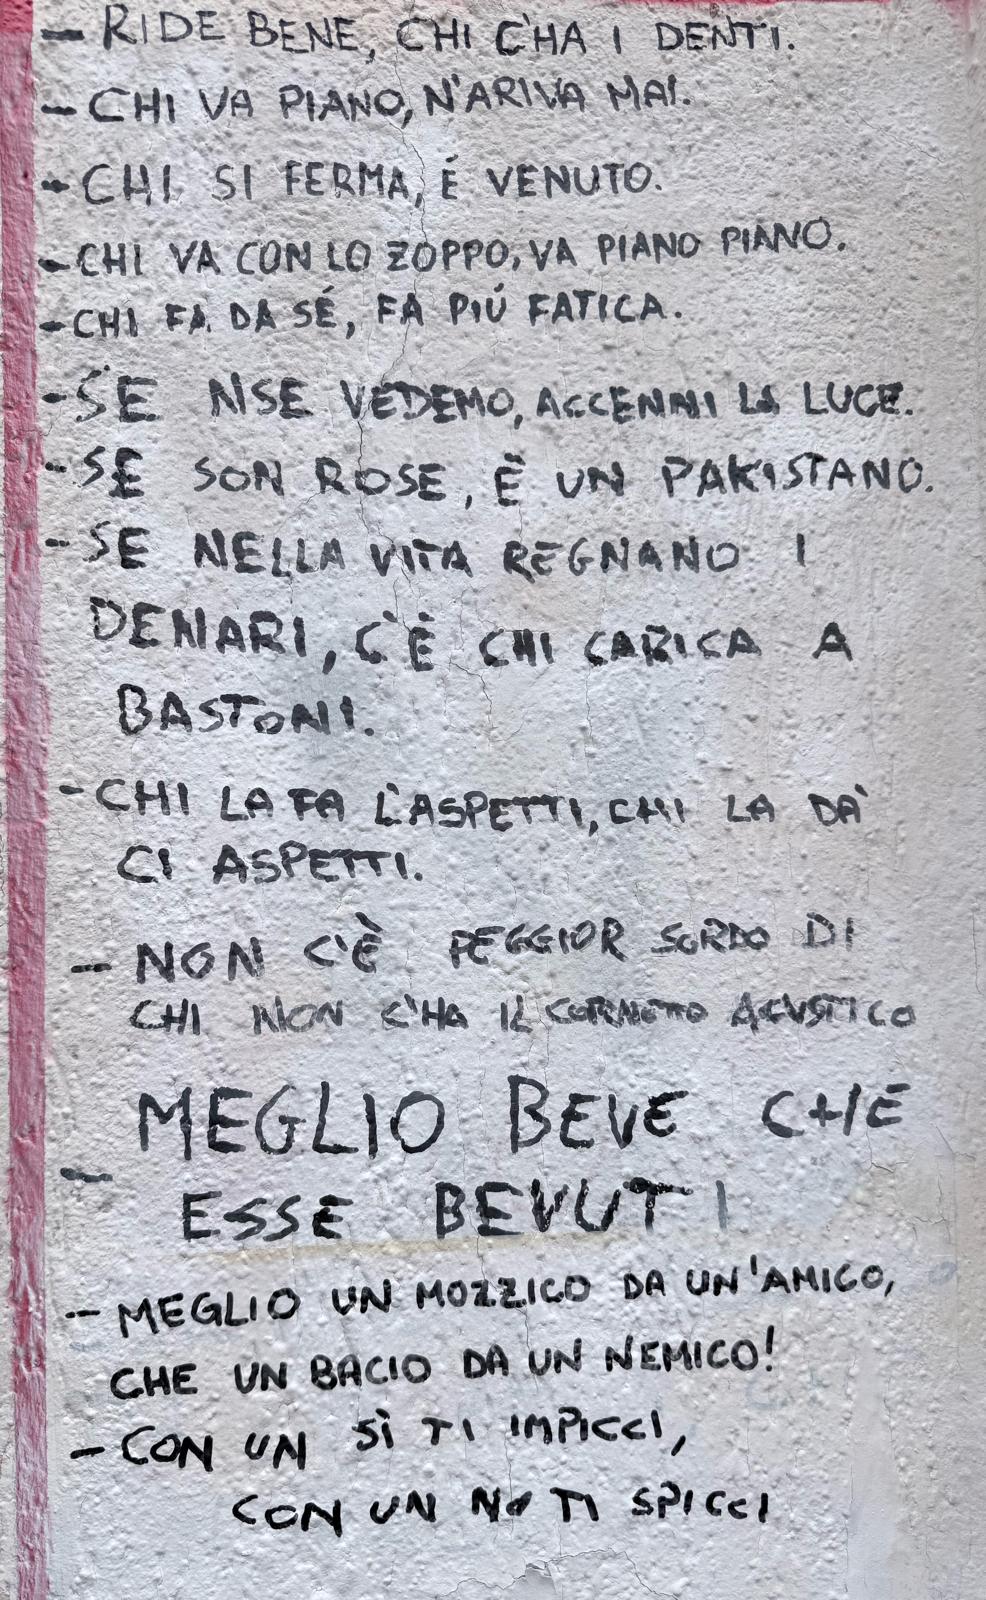 - RIDE BENE, CHI C'HA I DENTI.
- CHI VA PIANO, N'ARIVA MAI.
- CHI SI FERMA, É VENUTO.
- CHI VA CON LO ZOPPO, VA PIANO PIANO.
- CHI FA DA SÉ, FA PIÚ FATICA.
- SE NSE VEDEMO, ACCENNI LA LUCE.
- SE SON ROSE, È UN PAKISTANO.
- SE NELLA VITA REGNANO I
DENARI, C'È CHI CARICA A
BASTONI.
- CHI LA FA L'ASPETTI, CHI LA DÀ
CI ASPETTI.
- NON C'È PEGGIOR SORDO DI
CHI NON C'HA IL CORNETTO ACUSTICO
- MEGLIO BEVE CHE
ESSE BEVUTI
- MEGLIO UN MOZZICO DA UN'AMICO,
CHE UN BACIO DA UN NEMICO!
- CON UN SÌ TI IMPICCI,
CON UN NO TI SPICCI